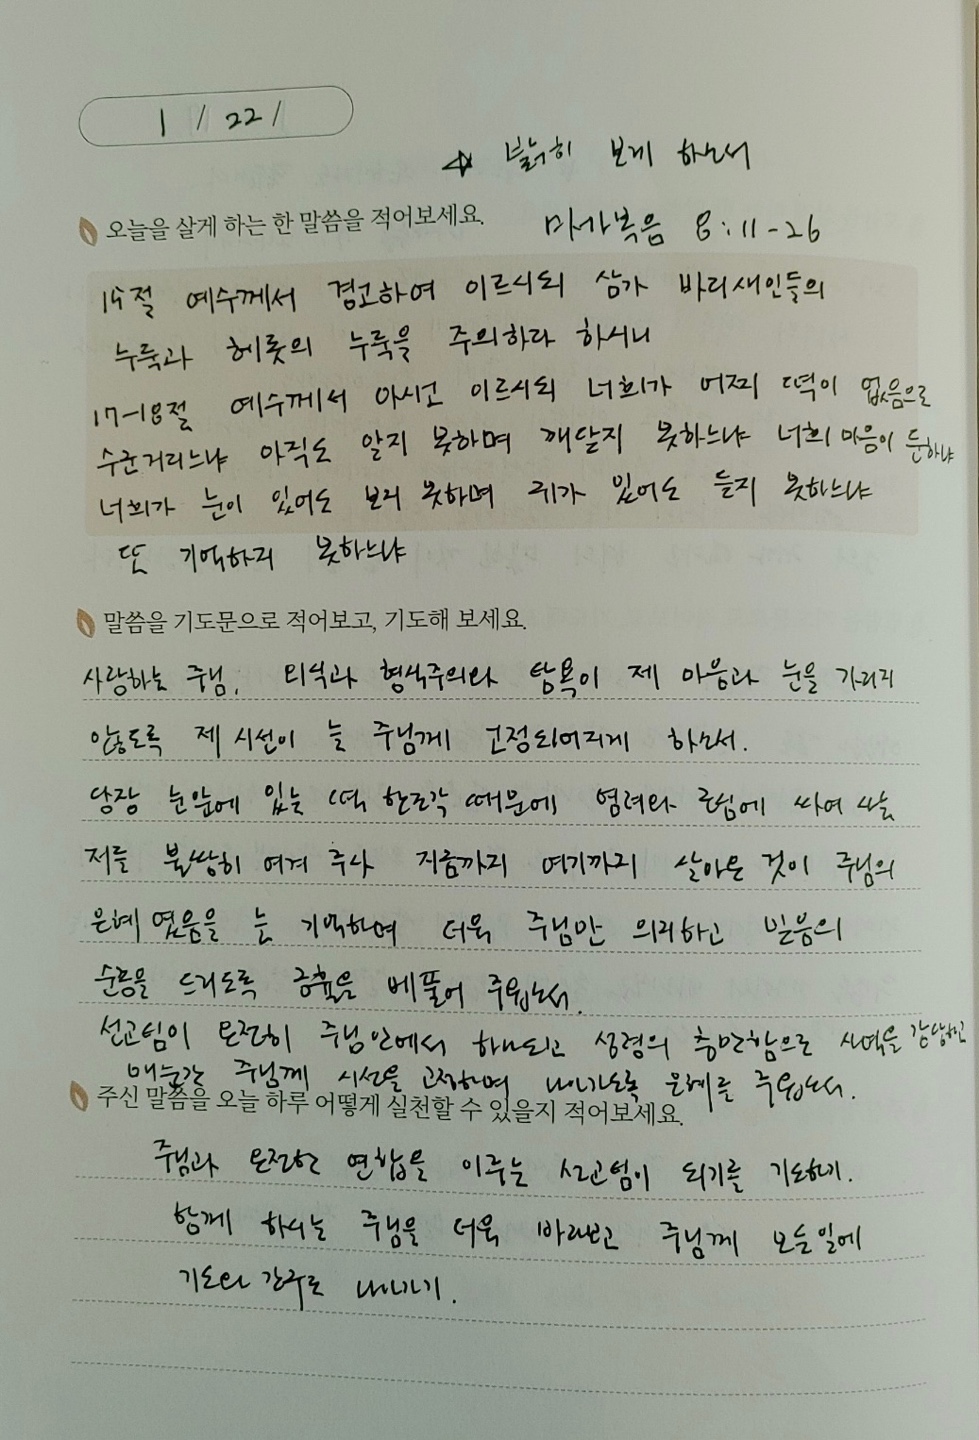 1 / 22 /
☆ 밝히 보게 하소서
오늘을 살게 하는 한 말씀을 적어보세요.
마가복음 8:11-26
15절 예수께서 경고하여 이르시되 삼가 바리새인들의
누룩과 헤롯의 누룩을 주의하라 하시니
17-18절 예수께서 아시고 이르시되 너희가 어찌 떡이 없음으로
수군거리느냐 아직도 알지 못하며 깨닫지 못하느냐 너희 마음이 둔하냐
너희가 눈이 있어도 보지 못하며 귀가 있어도 듣지 못하느냐
또 기억하지 못하느냐
말씀을 기도문으로 적어보고, 기도해 보세요.
사랑하는 주님, 외식과 형식주의와 탐욕이 제 마음과 눈을 가리지
않도록 제 시선이 늘 주님께 고정되어지게 하소서.
당장 눈앞에 있는 떡 한조각 때문에 염려와 근심에 싸여 있는
저를 불쌍히 여겨 주사 지금까지 여기까지 살아온 것이 주님의
은혜 였음을 늘 기억하며 더욱 주님만 의지하고 믿음의
순종을 드리도록 긍휼을 베풀어 주옵소서.
선교팀이 온전히 주님 안에서 하나되고 성령의 충만함으로 사역을 감당하고
매순간 주님께 시선을 고정하며 나아가도록 은혜를 주옵소서.
주신 말씀을 오늘 하루 어떻게 실천할 수 있을지 적어보세요.
주님과 온전한 연합을 이루는 선교팀이 되기를 기도하기.
함께 하시는 주님을 더욱 바라보고 주님께 모든일에
기도와 간구로 나아가기.